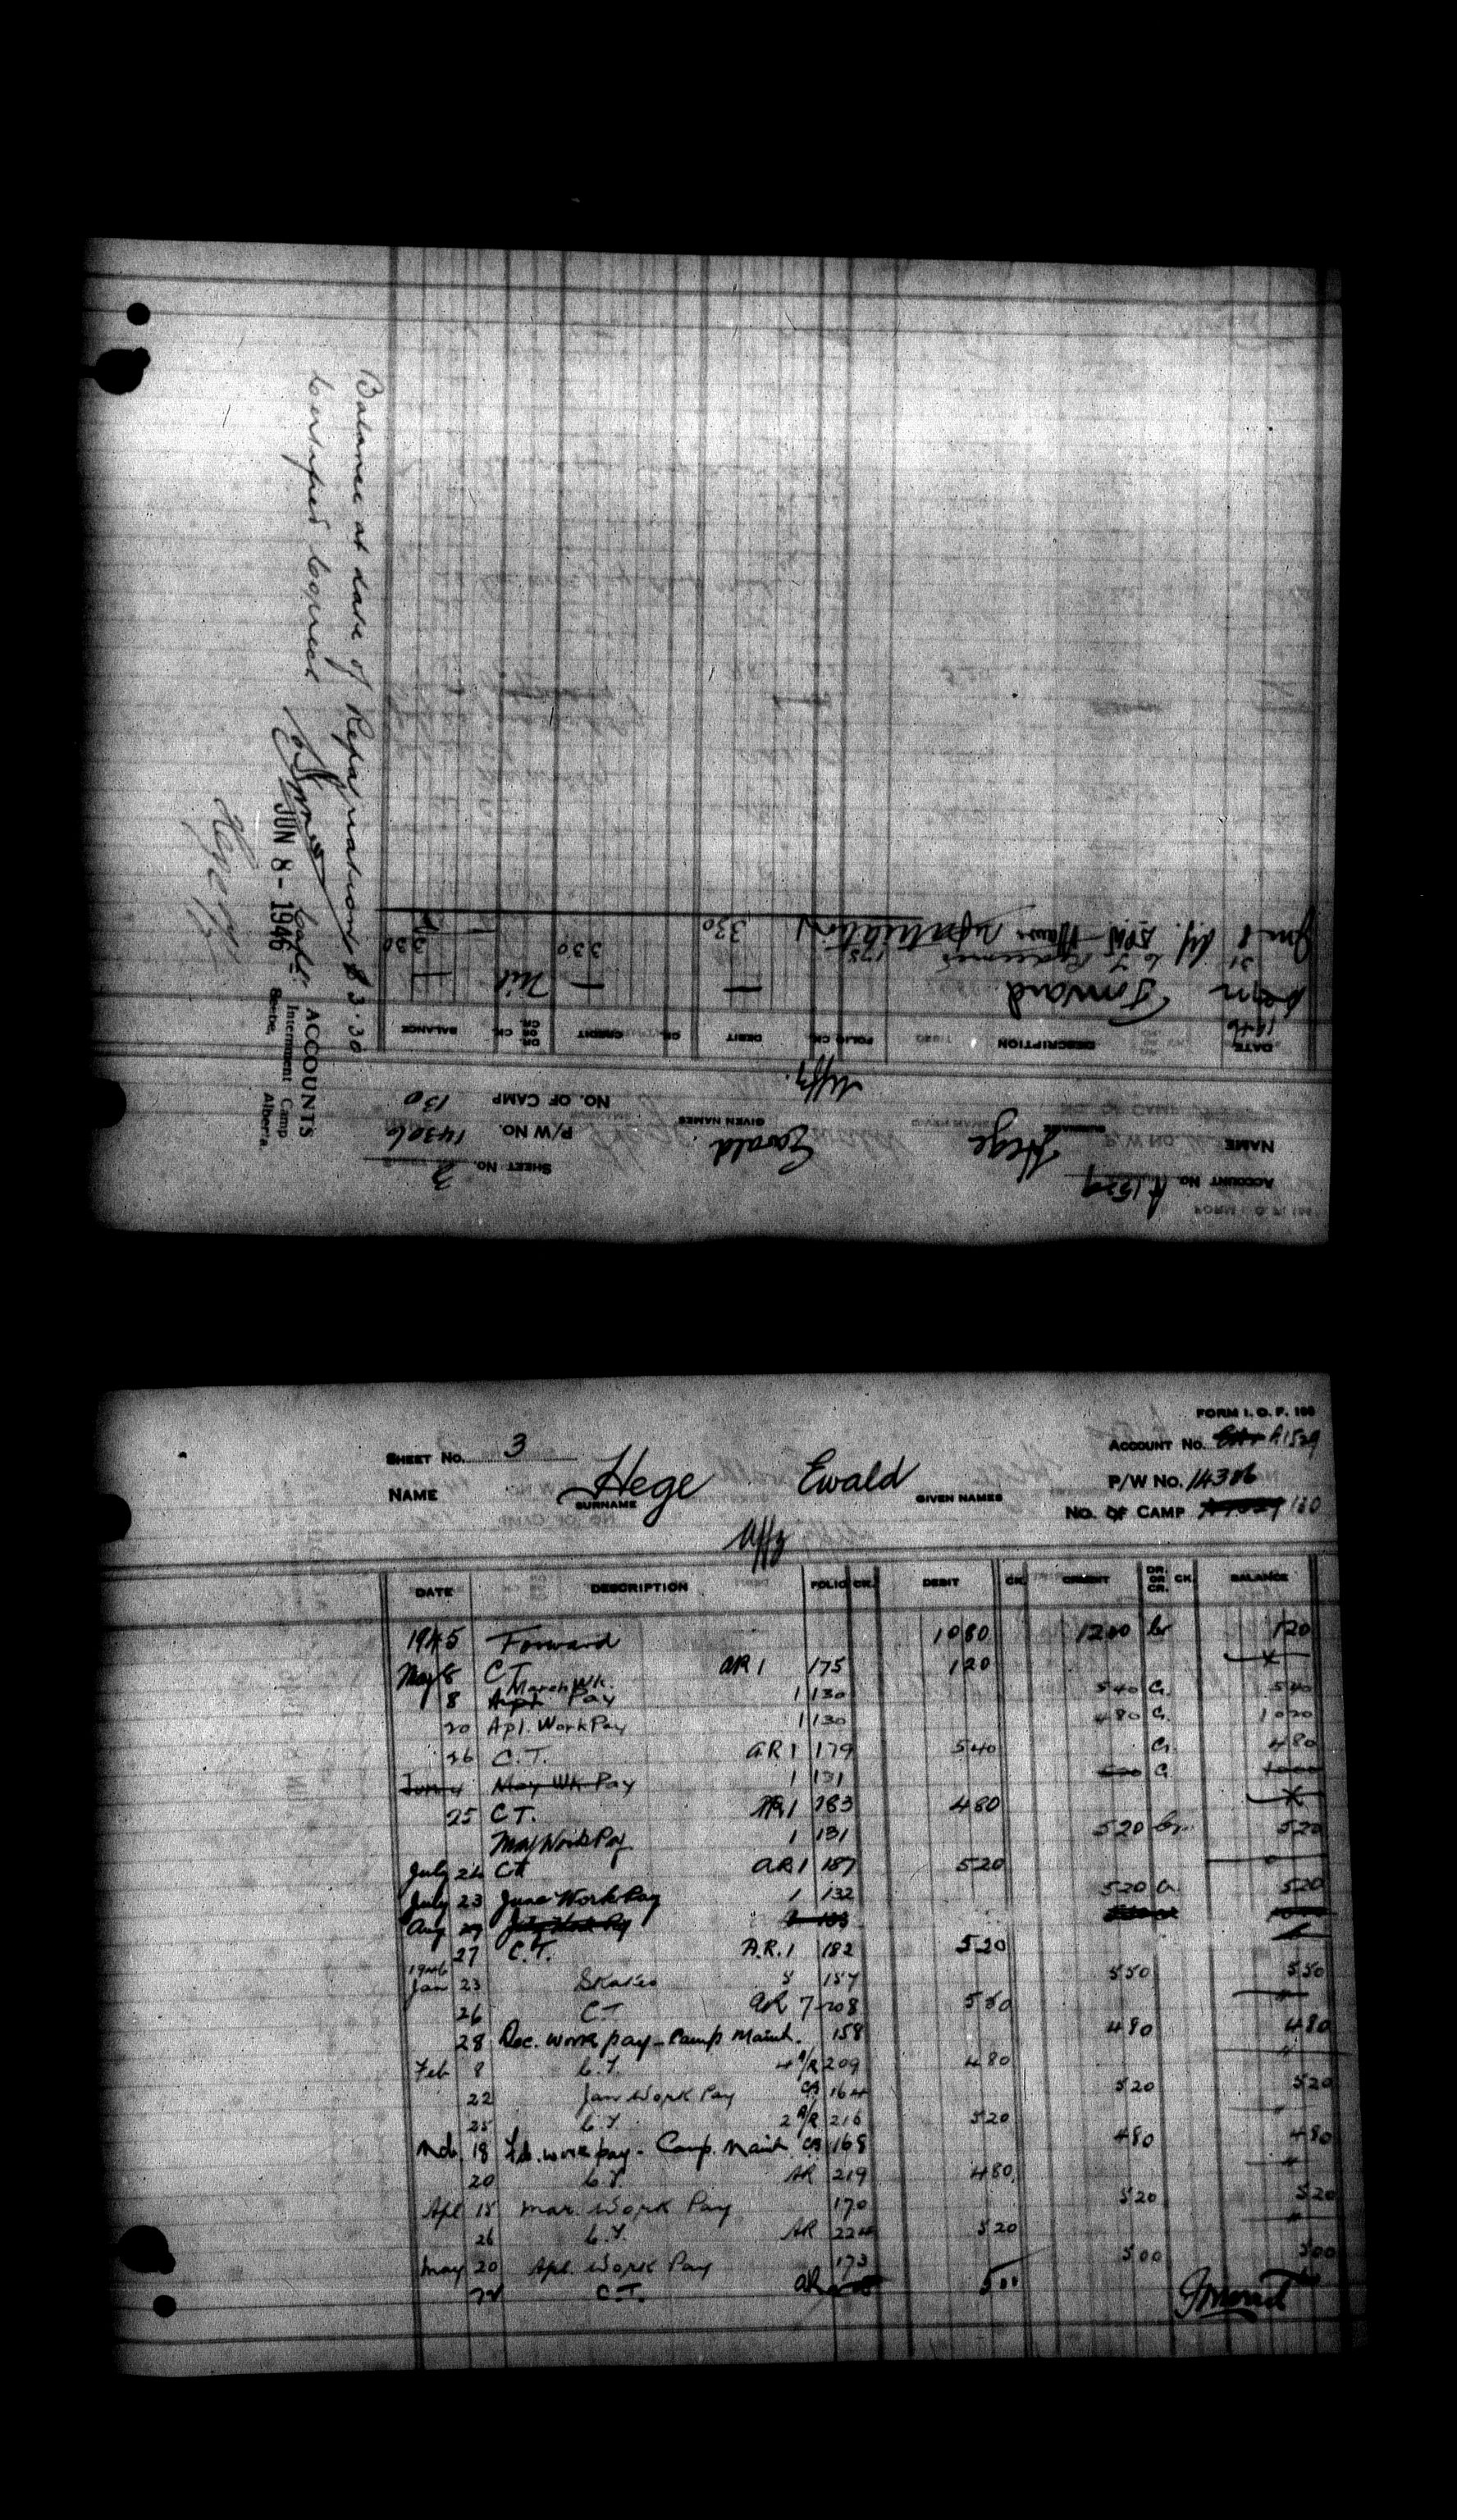 Balance at date of Repatriation $3.30
Certified Correct
Capt.
JUN 8 - 1946
ACCOUNTS
Internment Camp
Seebe, Alberta.
FORM I. O. P. 100
ACCOUNT No. A1529
SHEET No.
NAME Hege Ewald
SURNAME GIVEN NAMES
P/W NO. 14306
NO. OF CAMP 130
Uffz.
DATE DESCRIPTION FOLIO CK. DEBIT CK. CREDIT DR. OR CR. CK. BALANCE
1946
Forward — — Nil —
31 175 330 330
Jun 8 repatriation 330
FORM I. O. P. 100
SHEET No. 3
ACCOUNT No. A1529
NAME Hege Ewald
SURNAME GIVEN NAMES
P/W No. 14306
No. OF CAMP 130
Uffz
DATE DESCRIPTION FOLIO CK. DEBIT CK. CREDIT DR. OR CR. CK. BALANCE
1945 Forward 1080 1200 Cr 120
May 8 C.T. AR 1 175 120
8 March Wk. Pay 1 130 540 Cr. 540
20 Apl. Work Pay 1 130 480 Cr. 1020
26 C.T. AR 1 179 540 Cr. 480
June May Wk Pay 1 131 Cr
25 C T. AR 1 183 480
May Work Pay 1 131 520 Cr. 520
July 26 CT AR 1 187 520
July 23 June Work Pay 1 132 520 Cr 520
Aug July Work Pay
27 C.T. A.R. 1 182 520
1946
Jan 23 Skates 157 550 550
26 C.T. AR 7 208 550
28 Dec. work pay - Camp Maint. 158 480 480
Feb 8 C.T. 4 A/R 209 480
22 Jan Work Pay CB 164 520 520
25 C.T. 2 A/R 216 520
Mch. 18 Feb. work pay - Camp. Maint CB 168 480 480
20 C.T. AR 219 480
Apl 18 Mar. Work Pay 170 520 520
26 C.T. AR 224 520
May 20 Apl. Work Pay 173 500 500
C.T. AR 500
Forward